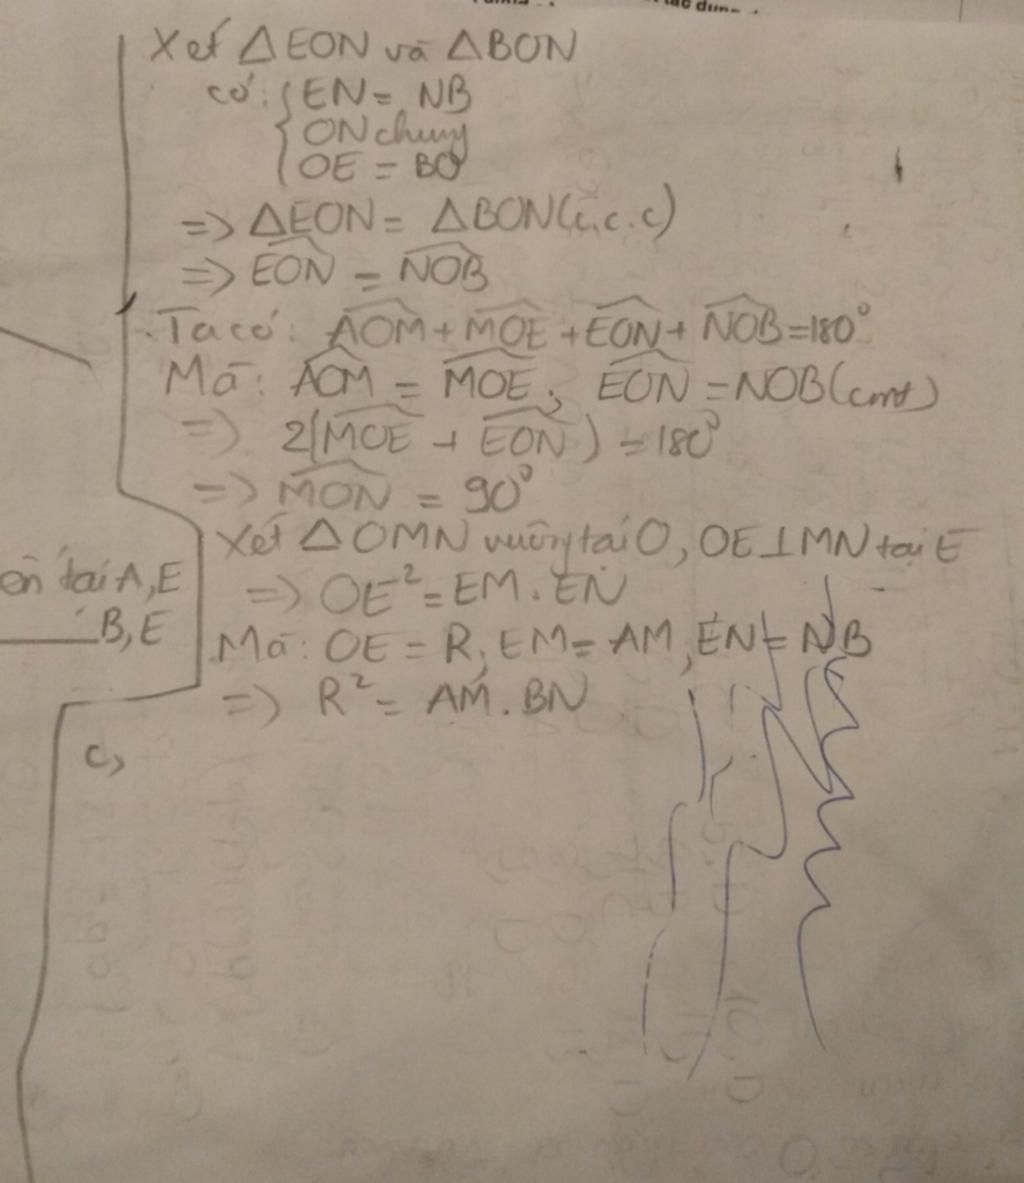 Xét △EON và △BON
có: { EN = NB
ON chung
OE = BO
=> △EON = △BON (c.c.c)
=> \widehat{EON} = \widehat{NOB}
Ta có: \widehat{AOM} + \widehat{MOE} + \widehat{EON} + \widehat{NOB} = 180°
Mà: \widehat{AOM} = \widehat{MOE}; \widehat{EON} = NOB (cmt)
=> 2(\widehat{MOE} + \widehat{EON}) = 180°
=> \widehat{MON} = 90°
Xét △OMN vuông tại O, OE⊥MN tại E
=> OE² = EM . EN
tại A, E
B, E
Mà: OE = R, EM = AM, EN = NB
=> R² = AM . BN
c,